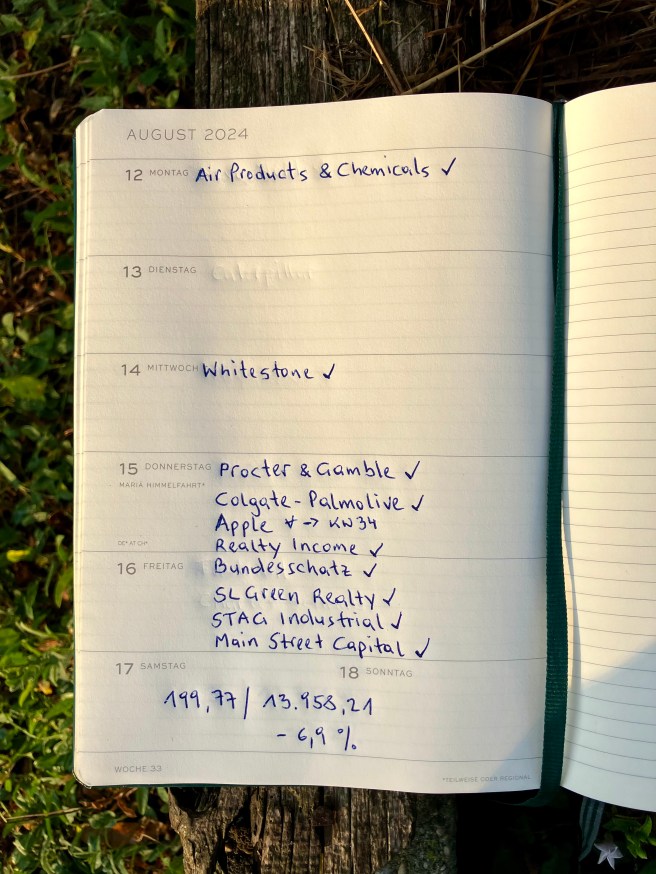 AUGUST 2024
12 MONTAG Air Products & Chemicals ✓
13 DIENSTAG Caterpillar
14 MITTWOCH Whitestone ✓
15 DONNERSTAG Procter & Gamble ✓
MARIÄ HIMMELFAHRT*
Colgate-Palmolive ✓
Apple → KW34
DE* AT CH*
Realty Income ✓
16 FREITAG Bundesschatz ✓
SL Green Realty ✓
STAG Industrial ✓
Main Street Capital ✓
17 SAMSTAG 18 SONNTAG
199,77 / 13.958,21
- 6,9 %
WOCHE 33 *TEILWEISE ODER REGIONAL